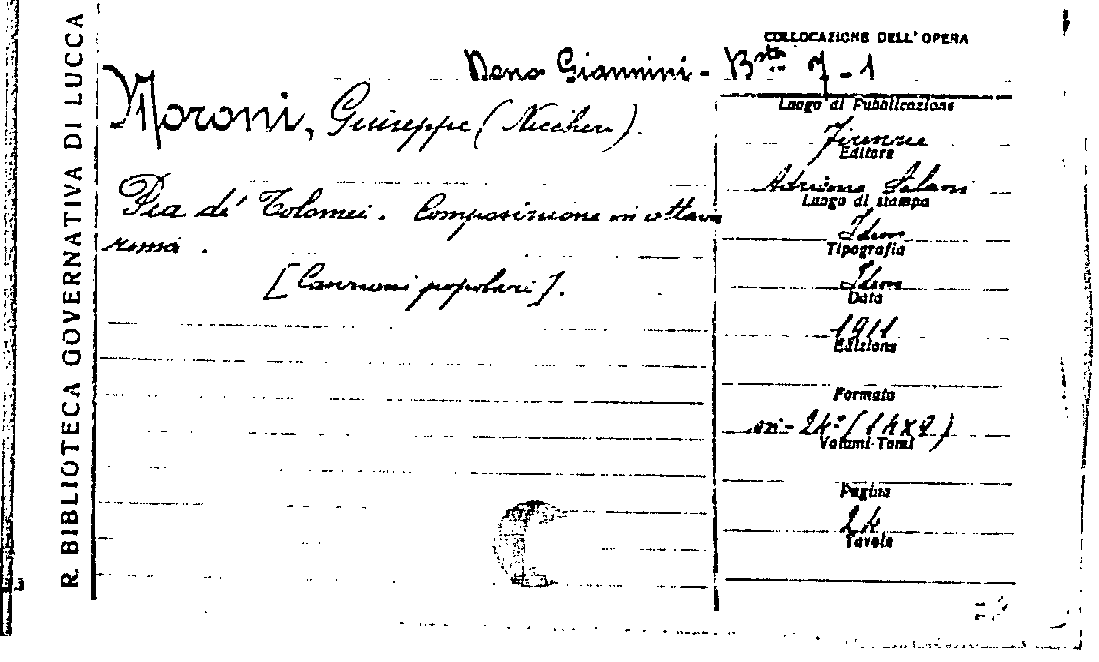 R. BIBLIOTECA GOVERNATIVA DI LUCCA
COLLOCAZIONE DELL'OPERA
Dono Giannini - Bsta 7-1
Moroni, Giuseppe (Niccheri).
Pia de' Tolomei. Composizione in ottava
rima.
[Canzoni popolari].
Luogo di Pubblicazione
Firenze
Editore
Adriano Salani
Luogo di stampa
Idem
Tipografia
Idem
Data
1911
Edizione
Formato
in-24º (14x8)
Volumi-Tomi
Pagine
24
Tavole